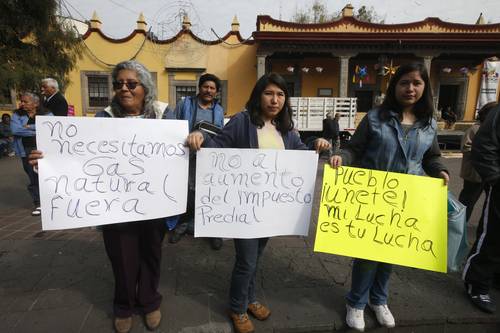 no
necesitamos
Gas
natural
fuera
NO al
aumento
del impuesto
Predial
Pueblo
Tunete!
mi Lucha
es tu Lucha